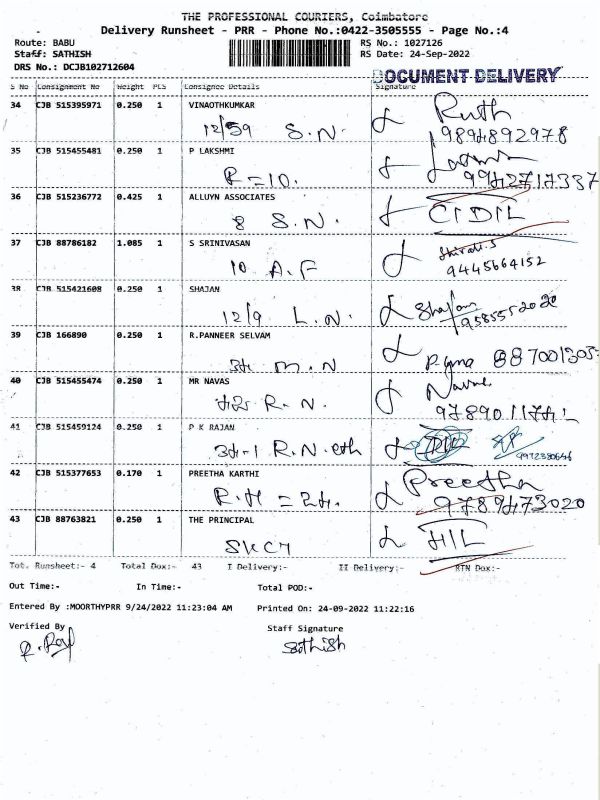 THE PROFESSIONAL COURIERS, Coimbatore
Delivery Runsheet - PRR - Phone No.:0422-3505555 - Page No.:4
Route: BABU RS No.: 1027126
Staff: SATHISH RS Date: 24-Sep-2022
DRS No.: DCJB102712604 DOCUMENT DELIVERY
S No Consignment No Weight PLS Consignee Details Signature
34 CJB 515395971 0.250 1 VINAOTHKUMKAR Ruth
12/59 S.N. 9894892978
35 CJB 515455481 0.250 1 P LAKSHMI
R=10. 9942717337
36 CJB 515236772 0.425 1 ALLUYN ASSOCIATES
8 S.N. CIDIL
37 CJB 88786182 1.085 1 S SRINIVASAN
10 A.F 9445664152
38 CJB 515421608 0.250 1 SHAJAN Shajan
12/9 L.N. 9585552020
39 CJB 166890 0.250 1 R.PANNEER SELVAM
M.N 887001305
40 CJB 515455474 0.250 1 MR NAVAS
R.N.
41 CJB 515459124 0.250 1 P K RAJAN
R.N. 9992380646
42 CJB 515377653 0.170 1 PREETHA KARTHI Preetha
R.H = 24. 9789473020
43 CJB 88763821 0.250 1 THE PRINCIPAL
HIL
Tot. Runsheet:- 4 Total Dox:- 43 I Delivery:- II Delivery:- RTN Dox:-
Out Time:- In Time:- Total POD:-
Entered By :MOORTHYPRR 9/24/2022 11:23:04 AM Printed On: 24-09-2022 11:22:16
Verified By Staff Signature
Sathish